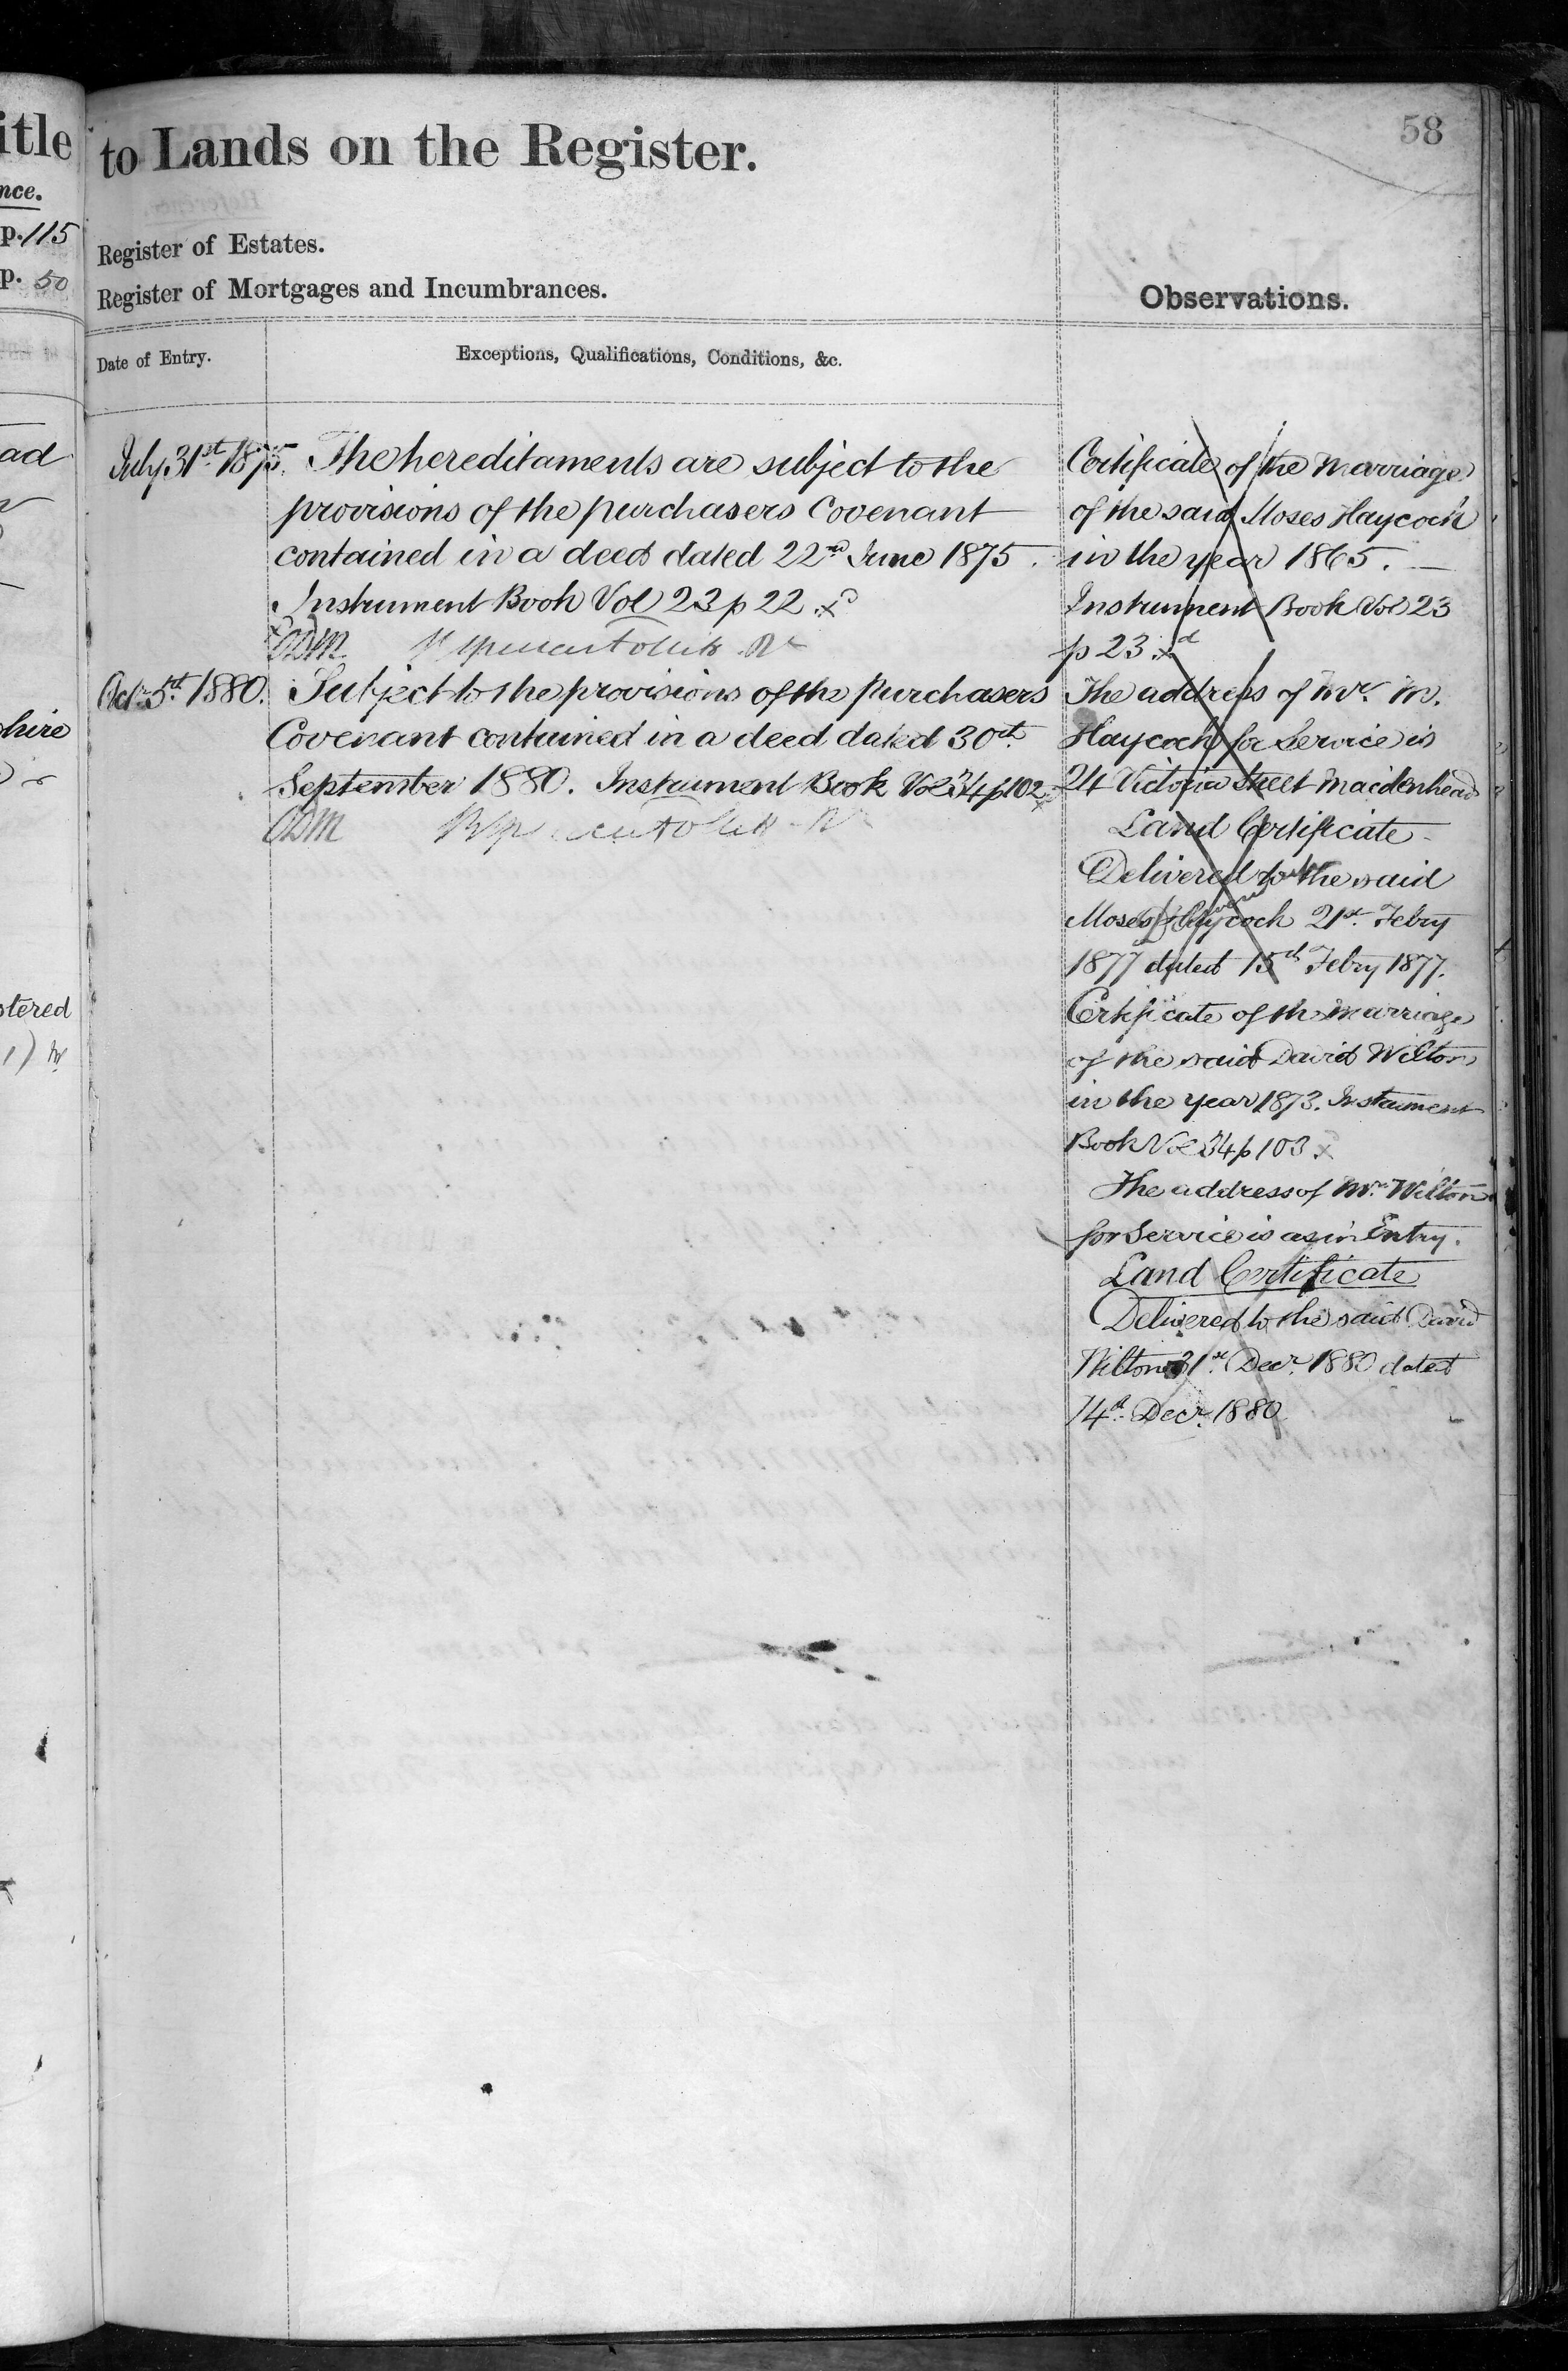 itle
nce.
p. 115
p. 50
ad
hire
stered
58
to Lands on the Register.
Register of Estates.
Register of Mortgages and Incumbrances.
Observations.
Date of Entry.
Exceptions, Qualifications, Conditions, &c.
July 31st 1875. The hereditaments are subject to the
provisions of the purchasers Covenant
contained in a deed dated 22nd June 1875.
Instrument Book Vol 23 p 22
Octr 5th 1880. Subject to the provisions of the purchasers
Covenant contained in a deed dated 30th
September 1880. Instrument Book Vol 34 p 102
Certificate of the Marriage
of the said Moses Haycock
in the year 1865.
Instrument Book Vol 23
p 23
The address of Mr. M.
Haycock for Service is
24 Victoria Street Maidenhead
Land Certificate
Delivered to the said
Moses Haycock 21st Febry
1877 dated 15th Febry 1877.
Certificate of the Marriage
of the said David Wilton
in the year 1873. Instrument
Book Vol 34 p 103
The address of Mr. Wilton
for Service is as in Entry.
Land Certificate
Delivered to the said David
Wilton 31st Decr. 1880 dated
14th Decr. 1880